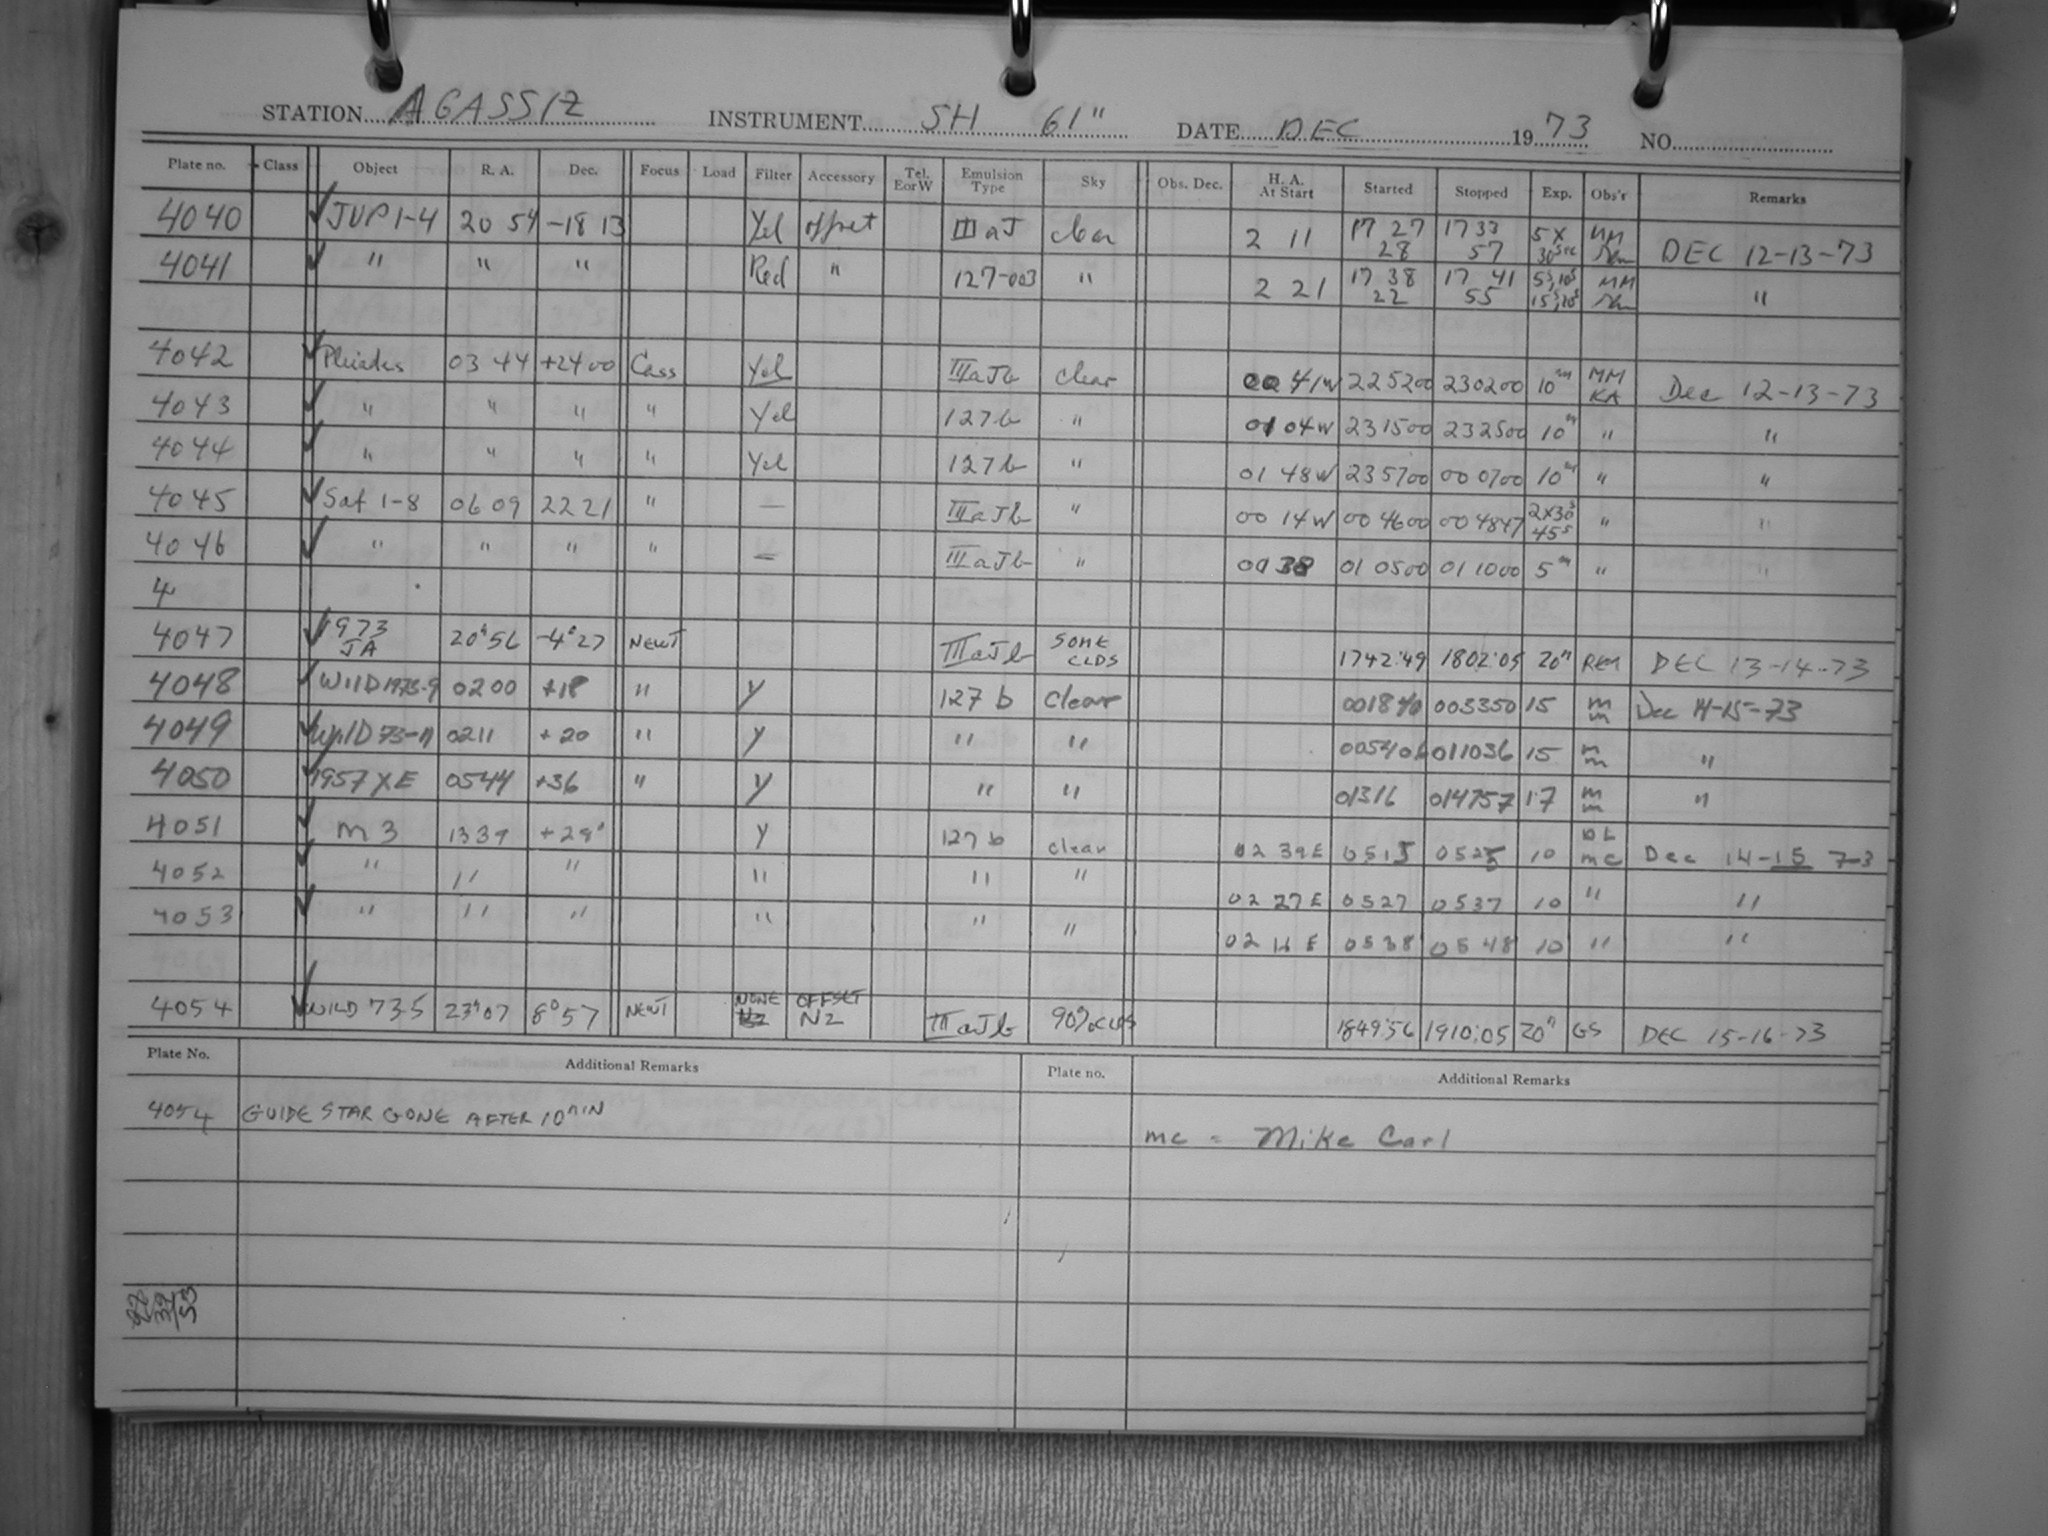 STATION AGASSIZ INSTRUMENT SH 61" DATE DEC 1973 NO.
Plate no. Class Object R. A. Dec. Focus Load Filter Accessory Tel. E or W Emulsion Type Sky Obs. Dec. H. A. At Start Started Stopped Exp. Obs'r Remarks
4040 JUP 1-4 20 54 -18 13 Yel offset IIIaJ clear 2 11 17 27 28 17 33 57 5X 30sec MM DEC 12-13-73
4041 " " " Red " 127-003 " 2 21 17 38 22 17 41 55 5s,10s 15s,20s MM "
4042 Pleiades 03 44 +24 00 Cass Yel IIIaJb clear 00 41W 225200 230200 10m MM KA Dec 12-13-73
4043 " " " " Yel 127b " 01 04W 231500 232500 10m " "
4044 " " " " Yel 127b " 01 48W 235700 000700 10m " "
4045 Sat 1-8 06 09 22 21 " — IIIaJb " 00 14W 004600 004847 2X30s 45s " "
4046 " " " " — IIIaJb " 00 38 010500 011000 5m " "
4
4047 1973 JA 20h56 -4°27 NEWT IIIaJb SOME CLDS 1742:49 1802:05 20m REM DEC 13-14-73
4048 WIlD 1973-9 0200 +18 " Y 127 b clear 001840 003350 15 m m Dec 14-15-73
4049 WIlD 73-11 0211 +20 " Y " " 011036 15 m m "
4050 1957 XE 0544 +36 " Y " " 01316 014757 17 m m "
4051 M 3 1339 +28° Y 127 b clear 02 39E 0515 0525 10 DL MC Dec 14-15 73
4052 " " " " " " 02 27E 0527 0537 10 " "
4053 " " " " " " 02 16 E 0538 0548 10 " "
4054 WILD 73-5 23h07 8°57 NEWT NONE OFFSET N2 IIIaJb 90% CLDS 1849:56 1910:05 20m GS DEC 15-16-73
Plate No. Additional Remarks Plate no. Additional Remarks
4054 GUIDE STAR GONE AFTER 10MIN
MC = Mike Carl